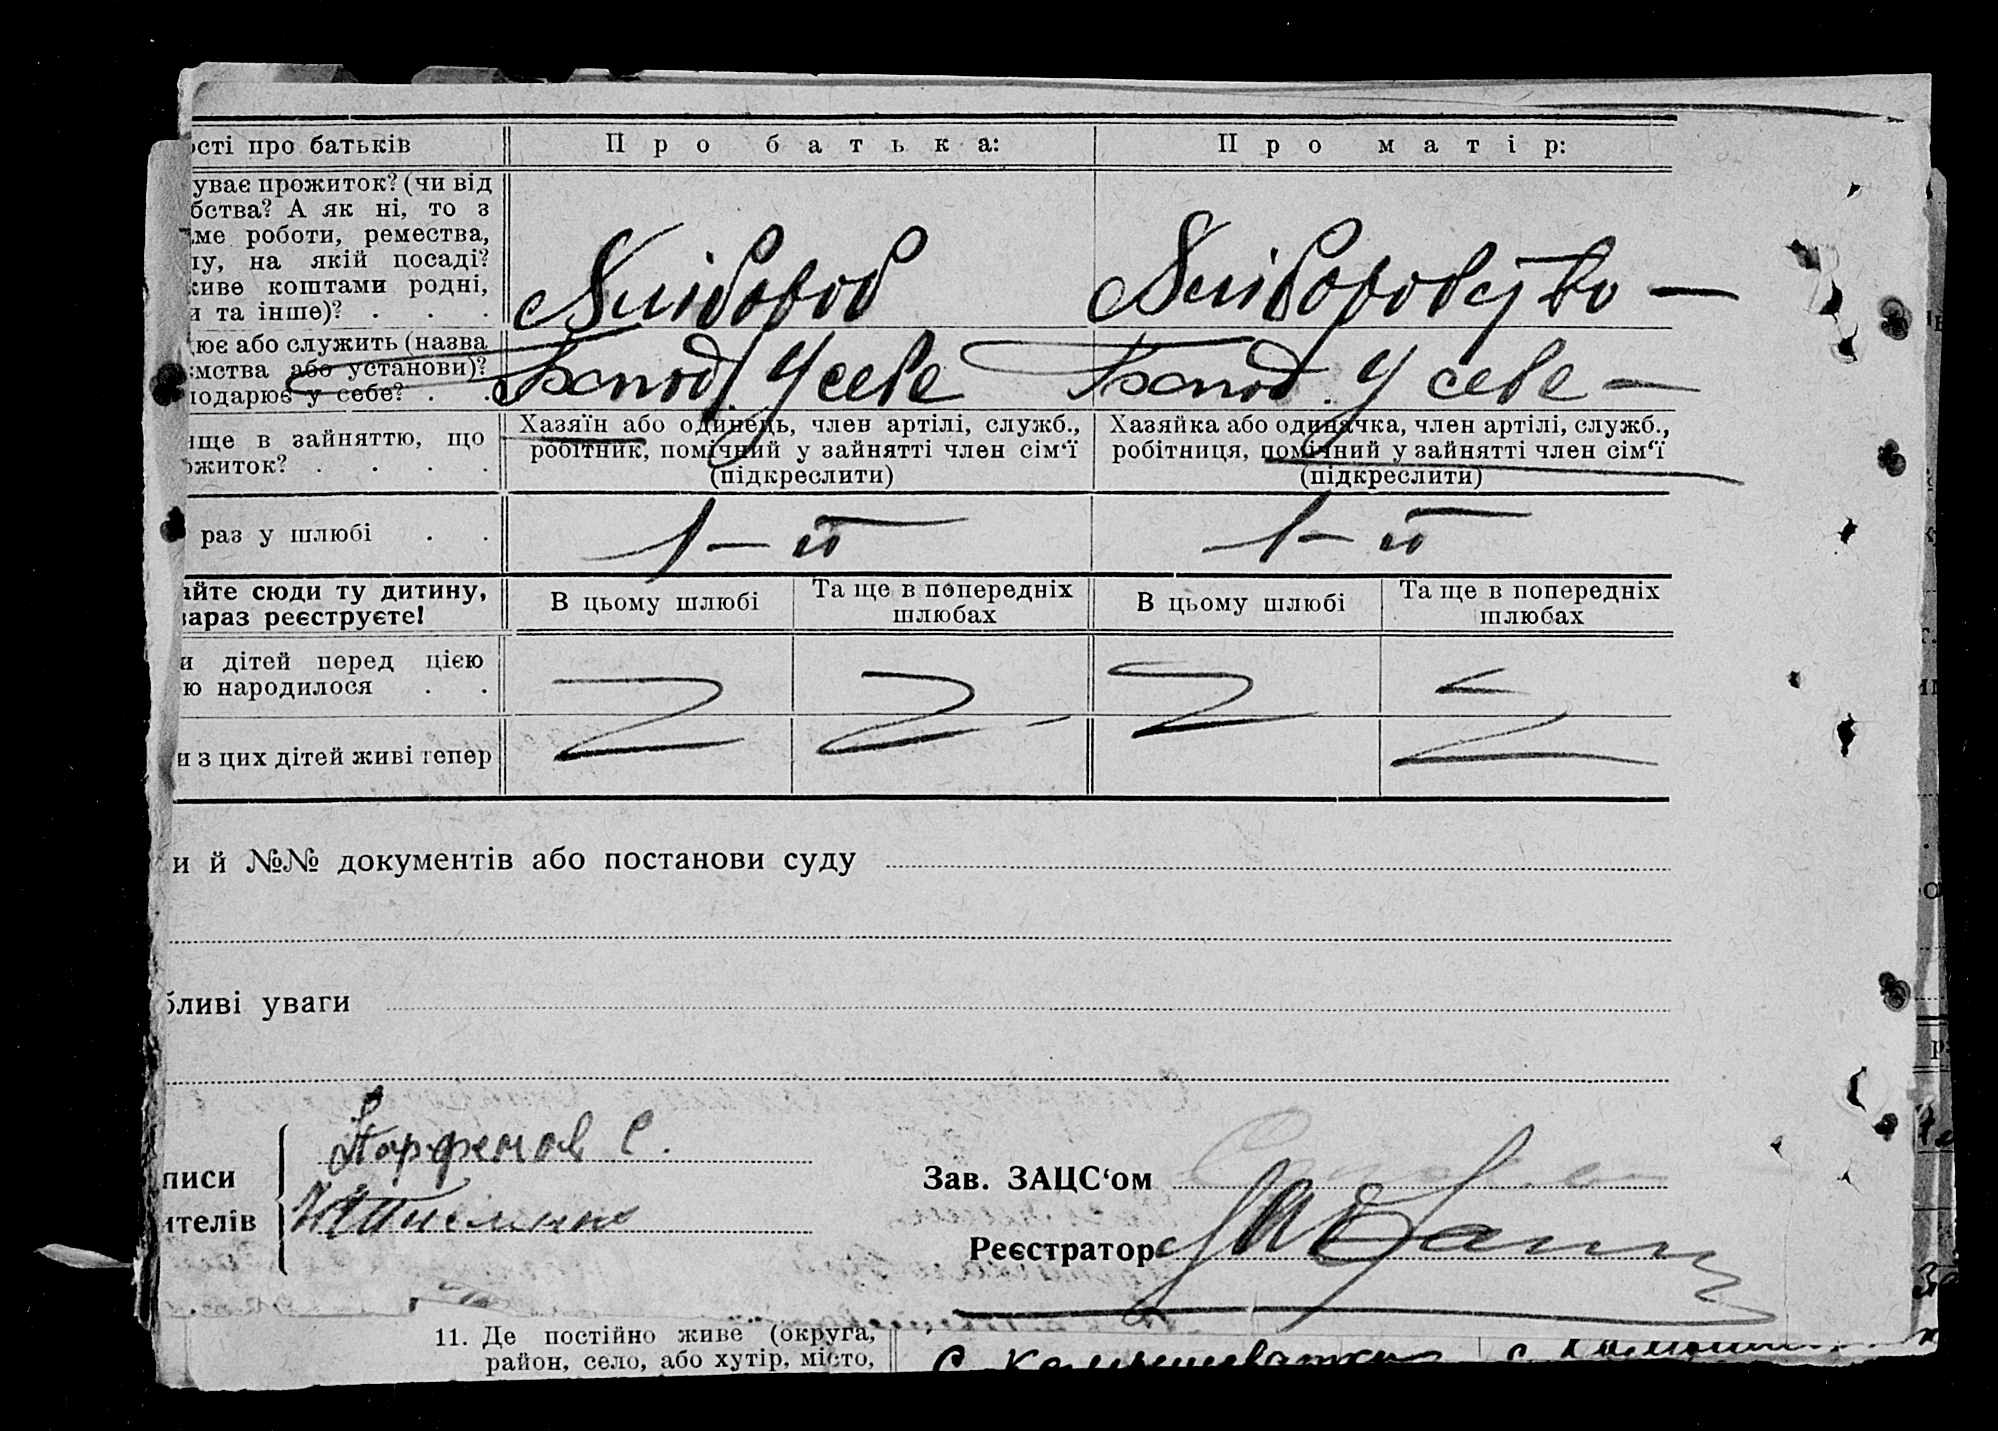 ості про батьків
Про батька:
Про матір:
ває прожиток? (чи від
бства? А як ні, то з
ме роботи, ремества,
лу, на якій посаді?
живе коштами родні,
и та інше)? . . .
Хлібороб
Хліборобство —
ює або служить (назва
мства або установи)?
подарює у себе? . .
Господ. У себе
Господ. У себе —
ище в зайняттю, що
ожиток? . . . .
Хазяїн або одинець, член артілі, служб.,
робітник, помічний у зайнятті член сім‘ї
(підкреслити)
Хазяйка або одиначка, член артілі, служб.,
робітниця, помічний у зайнятті член сім‘ї
(підкреслити)
раз у шлюбі . .
1-й
1-й
айте сюди ту дитину,
зараз реєструєте!
В цьому шлюбі
Та ще в попередніх
шлюбах
В цьому шлюбі
Та ще в попередніх
шлюбах
и дітей перед цією
ю народилося . .
и з цих дітей живі тепер
и й №№ документів або постанови суду
бливі уваги
писи
ителів
Парфенов С.
Зав. ЗАЦС‘ом
Реєстратор
11. Де постійно живе (округа,
район, село, або хутір, місто,